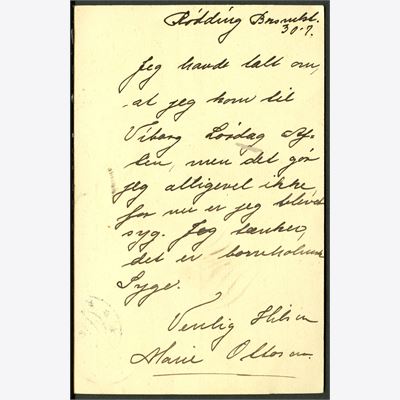 Rødding
30-7.
Jeg havde talt om,
at jeg kom til
Viborg Lørdag Af-
ten, men det gør
jeg alligevel ikke,
for nu er jeg blevet
syg. Jeg tænker,
det er bornholmsk
Syge.
Venlig Hilsen
Marie Ottosen.